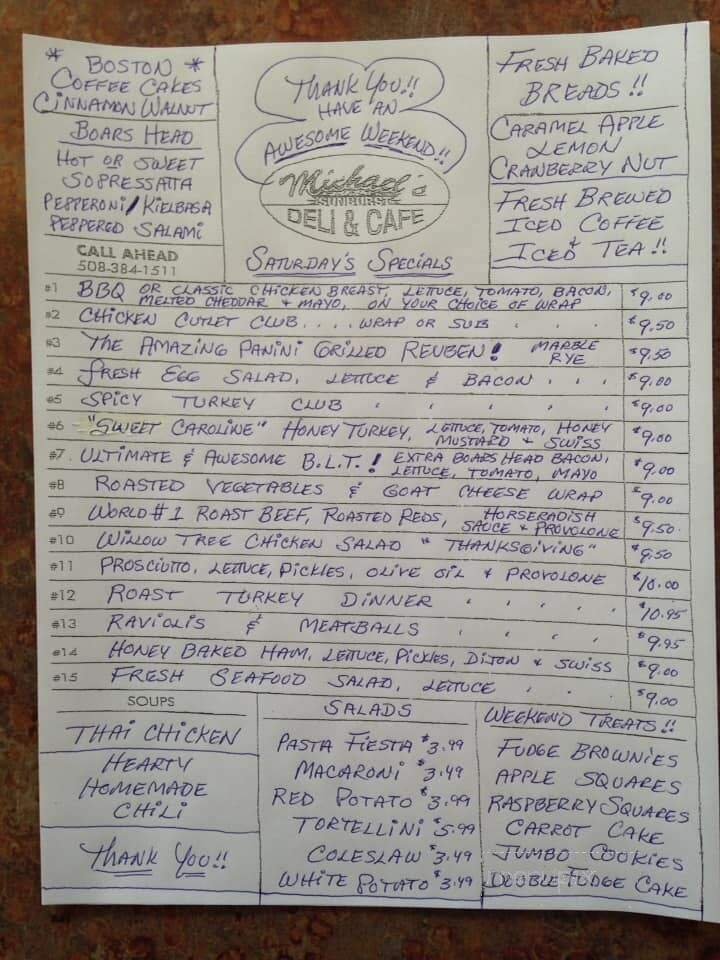 * BOSTON *
COFFEE CAKES
CINNAMON WALNUT
BOARS HEAD
HOT OR SWEET
SOPRESSATTA
PEPPERONI / KIELBASA
PEPPERED SALAMI
CALL AHEAD
508-384-1511
THANK YOU!!
HAVE AN
AWESOME WEEKEND!!
Michael's
DELI & CAFE
SATURDAY'S SPECIALS
FRESH BAKED
BREADS!!
CARAMEL APPLE
LEMON
CRANBERRY NUT
FRESH BREWED
ICED COFFEE
&
ICED TEA!!
#1 BBQ OR CLASSIC CHICKEN BREAST, LETTUCE, TOMATO, BACON, $9.00
MELTED CHEDDAR & MAYO, ON YOUR CHOICE OF WRAP
#2 CHICKEN CUTLET CLUB.... WRAP OR SUB $9.50
#3 THE AMAZING PANINI GRILLED REUBEN! MARBLE $9.50
RYE
#4 FRESH EGG SALAD, LETTUCE & BACON... $9.00
#5 SPICY TURKEY CLUB $9.00
#6 "SWEET CAROLINE" HONEY TURKEY, LETTUCE, TOMATO, HONEY $9.00
MUSTARD & SWISS
#7 ULTIMATE & AWESOME B.L.T.! EXTRA BOARS HEAD BACON, $9.00
LETTUCE, TOMATO, MAYO
#8 ROASTED VEGETABLES & GOAT CHEESE WRAP $9.00
#9 WORLD #1 ROAST BEEF, ROASTED REDS, HORSERADISH $9.50
SAUCE & PROVOLONE
#10 WILLOW TREE CHICKEN SALAD "THANKSGIVING" $9.50
#11 PROSCIUTTO, LETTUCE, PICKLES, OLIVE OIL & PROVOLONE $10.00
#12 ROAST TURKEY DINNER $10.95
#13 RAVIOLIS & MEATBALLS $9.95
#14 HONEY BAKED HAM, LETTUCE, PICKLES, DIJON & SWISS $9.00
#15 FRESH SEAFOOD SALAD, LETTUCE $9.00
SOUPS
THAI CHICKEN
HEARTY
HOMEMADE
CHILI
THANK YOU!!
SALADS
PASTA FIESTA $3.99
MACARONI $3.49
RED POTATO $3.99
TORTELLINI $5.99
COLESLAW $3.49
WHITE POTATO $3.49
WEEKEND TREATS!!
FUDGE BROWNIES
APPLE SQUARES
RASPBERRY SQUARES
CARROT CAKE
JUMBO COOKIES
DOUBLE FUDGE CAKE